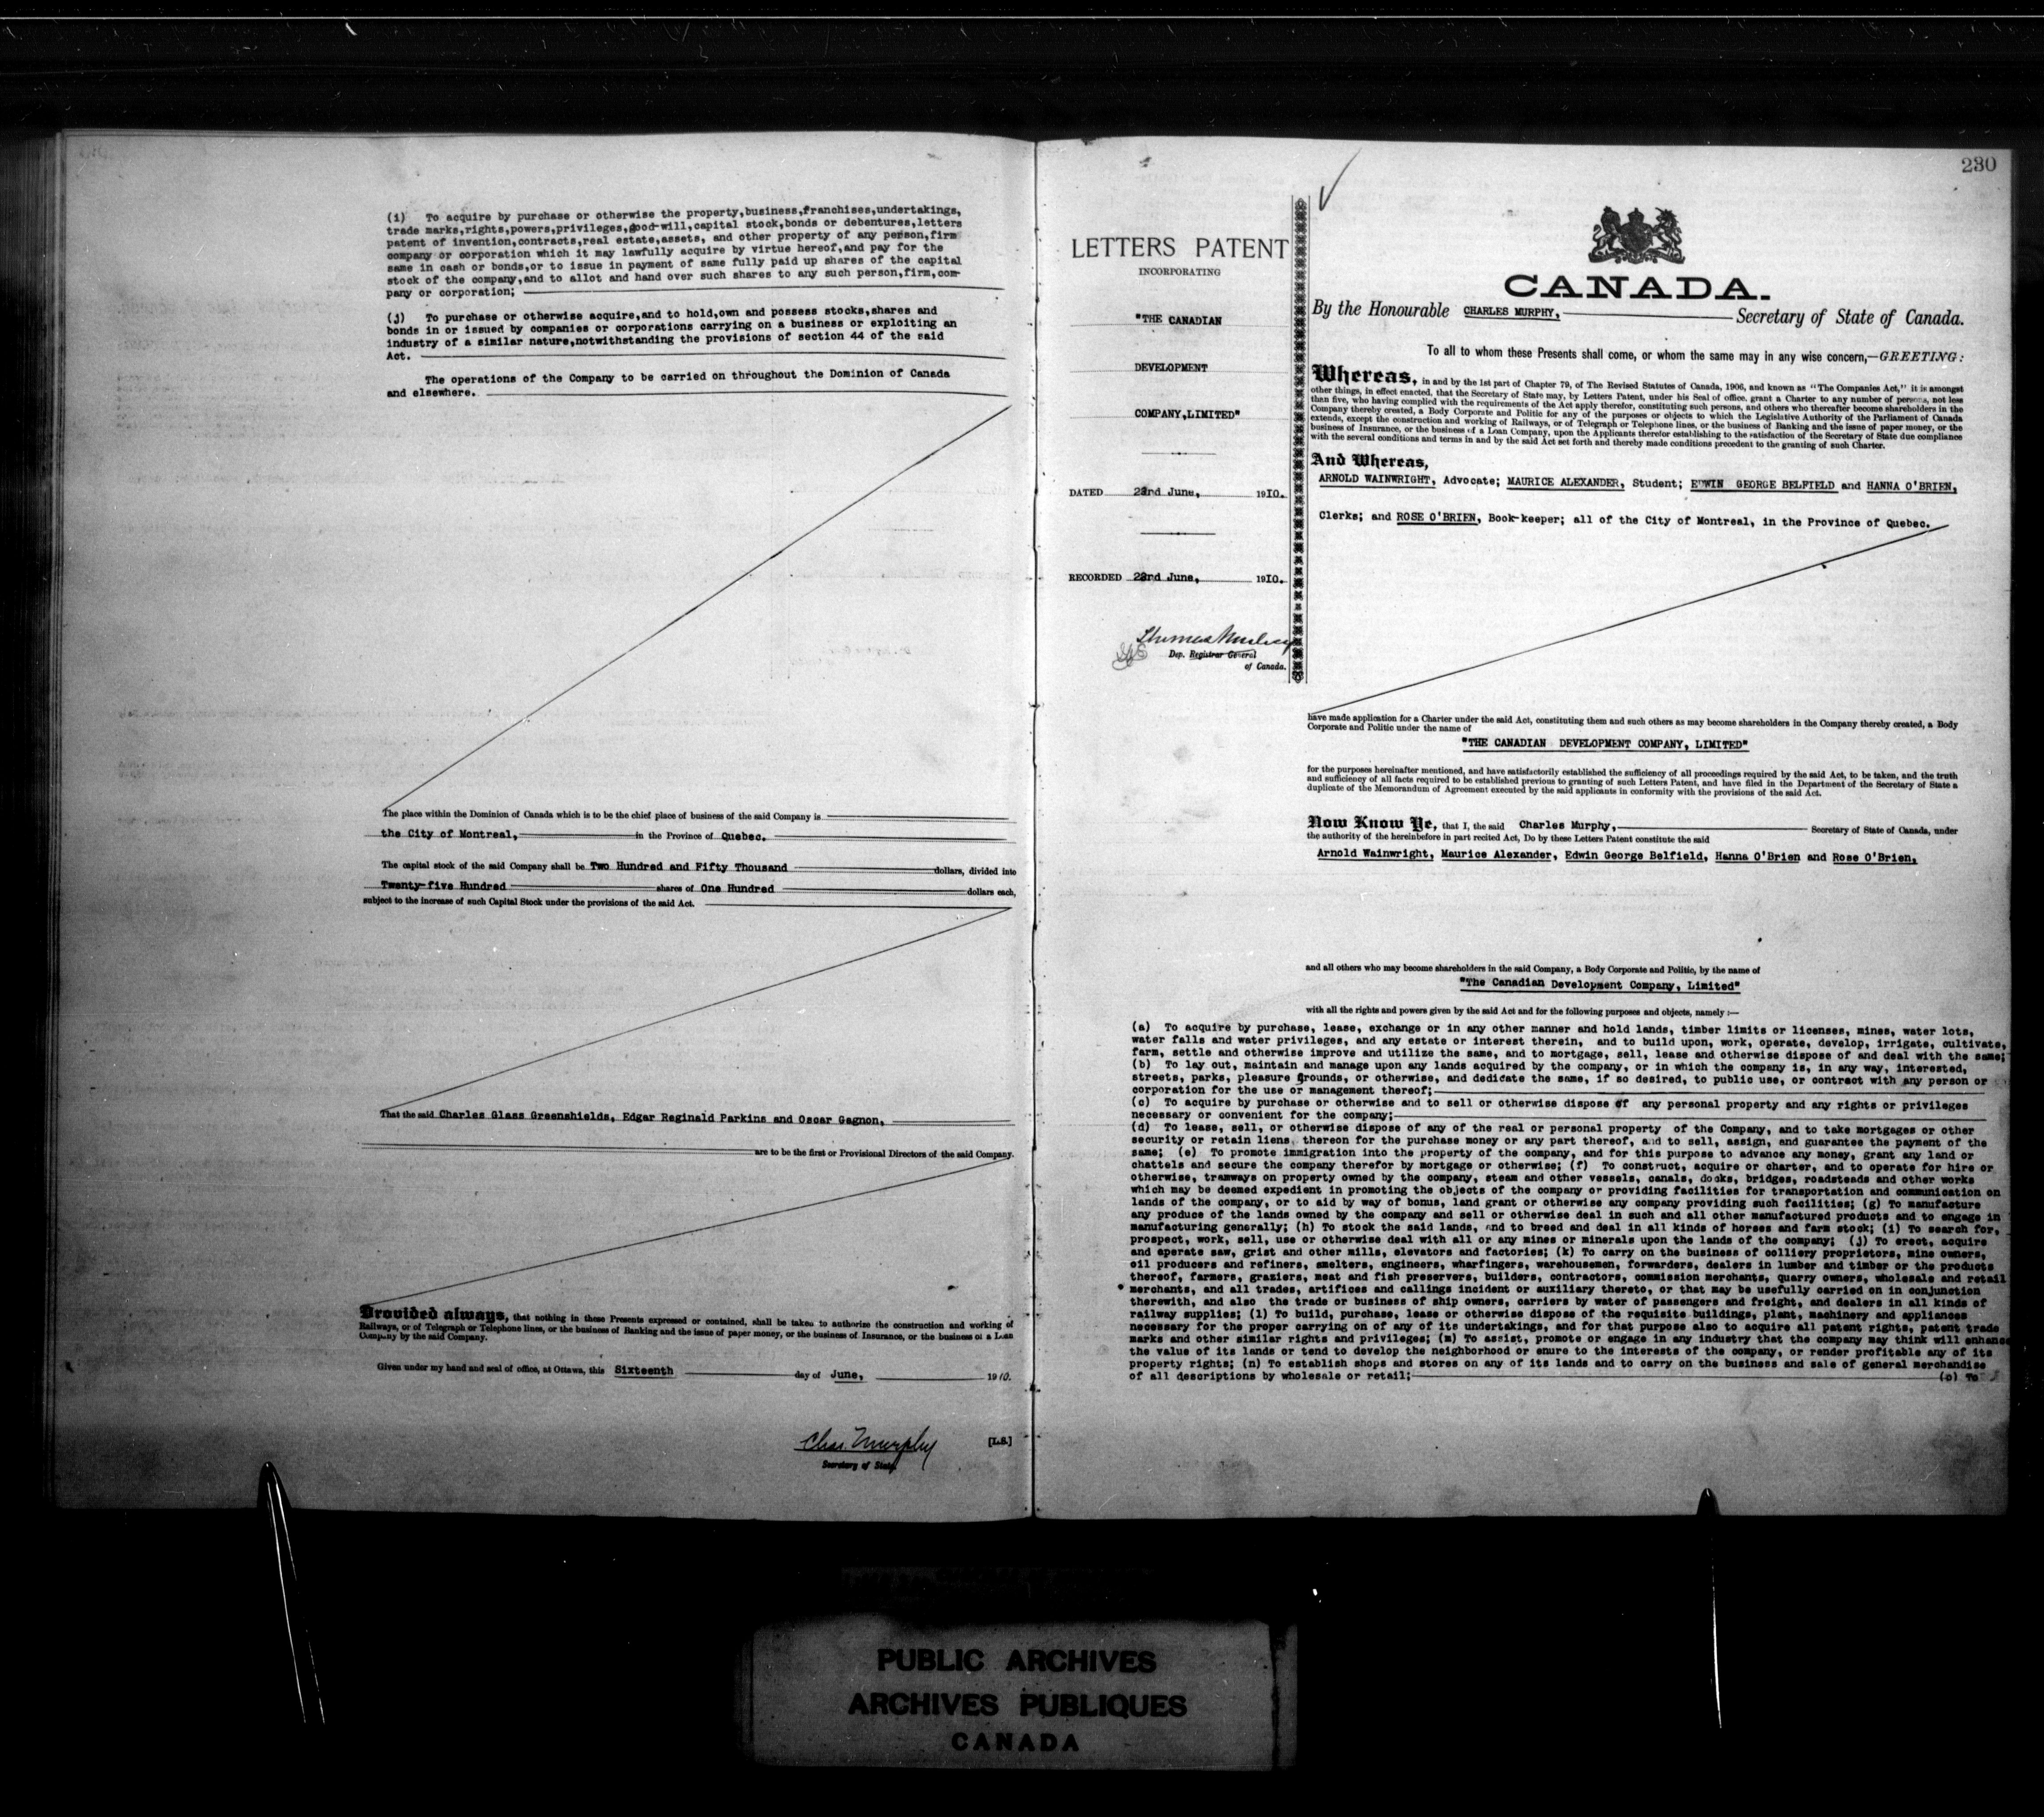 (i) To acquire by purchase or otherwise the property,business,franchises,undertakings,
trade marks,rights,powers,privileges,good-will,capital stock,bonds or debentures,letters
patent of invention,contracts,real estate,assets, and other property of any person,firm
company or corporation which it may lawfully acquire by virtue hereof,and pay for the
same in cash or bonds,or to issue in payment of same fully paid up shares of the capital
stock of the company,and to allot and hand over such shares to any such person,firm,com-
pany or corporation;
(j) To purchase or otherwise acquire,and to hold,own and possess stocks,shares and
bonds in or issued by companies or corporations carrying on a business or exploiting an
industry of a similar nature,notwithstanding the provisions of section 44 of the said
Act.
The operations of the Company to be carried on throughout the Dominion of Canada
and elsewhere.
The place within the Dominion of Canada which is to be the chief place of business of the said Company is
the City of Montreal, in the Province of Quebec.
The capital stock of the said Company shall be Two Hundred and Fifty Thousand dollars, divided into
Twenty-five Hundred shares of One Hundred dollars each,
subject to the increase of such Capital Stock under the provisions of the said Act.
That the said Charles Glass Greenshields, Edgar Reginald Parkins and Oscar Gagnon,
are to be the first or Provisional Directors of the said Company.
Provided always, that nothing in these Presents expressed or contained, shall be taken to authorize the construction and working of
Railways, or of Telegraph or Telephone lines, or the business of Banking and the issue of paper money, or the business of Insurance, or the business of a Loan
Company by the said Company.
Given under my hand and seal of office, at Ottawa, this Sixteenth day of June, 1910.
Chas. Murphy [L.S.]
Secretary of State.
230
LETTERS PATENT
INCORPORATING
"THE CANADIAN
DEVELOPMENT
COMPANY,LIMITED"
DATED 23rd June, 1910.
RECORDED 23rd June, 1910.
Thomas Mulvey
Dep. Registrar General
of Canada.
CANADA.
By the Honourable CHARLES MURPHY, Secretary of State of Canada.
To all to whom these Presents shall come, or whom the same may in any wise concern,—GREETING:
Whereas, in and by the 1st part of Chapter 79, of The Revised Statutes of Canada, 1906, and known as "The Companies Act," it is amongst
other things, in effect enacted, that the Secretary of State may, by Letters Patent, under his Seal of office, grant a Charter to any number of persons, not less
than five, who having complied with the requirements of the Act apply therefor, constituting such persons, and others who thereafter become shareholders in the
Company thereby created, a Body Corporate and Politic for any of the purposes or objects to which the Legislative Authority of the Parliament of Canada
extends, except the construction and working of Railways, or of Telegraph or Telephone lines, or the business of Banking and the issue of paper money, or the
business of Insurance, or the business of a Loan Company, upon the Applicants therefor establishing to the satisfaction of the Secretary of State due compliance
with the several conditions and terms in and by the said Act set forth and thereby made conditions precedent to the granting of such Charter.
And Whereas,
ARNOLD WAINWRIGHT, Advocate; MAURICE ALEXANDER, Student; EDWIN GEORGE BELFIELD and HANNA O'BRIEN,
Clerks; and ROSE O'BRIEN, Book-keeper; all of the City of Montreal, in the Province of Quebec.
have made application for a Charter under the said Act, constituting them and such others as may become shareholders in the Company thereby created, a Body
Corporate and Politic under the name of
"THE CANADIAN DEVELOPMENT COMPANY, LIMITED"
for the purposes hereinafter mentioned, and have satisfactorily established the sufficiency of all proceedings required by the said Act, to be taken, and the truth
and sufficiency of all facts required to be established previous to granting of such Letters Patent, and have filed in the Department of the Secretary of State a
duplicate of the Memorandum of Agreement executed by the said applicants in conformity with the provisions of the said Act.
Now Know Ye, that I, the said Charles Murphy, Secretary of State of Canada, under
the authority of the hereinbefore in part recited Act, Do by these Letters Patent constitute the said
Arnold Wainwright, Maurice Alexander, Edwin George Belfield, Hanna O'Brien and Rose O'Brien,
and all others who may become shareholders in the said Company, a Body Corporate and Politic, by the name of
"The Canadian Development Company, Limited"
with all the rights and powers given by the said Act and for the following purposes and objects, namely :—
(a) To acquire by purchase, lease, exchange or in any other manner and hold lands, timber limits or licenses, mines, water lots,
water falls and water privileges, and any estate or interest therein, and to build upon, work, operate, develop, irrigate, cultivate,
farm, settle and otherwise improve and utilize the same, and to mortgage, sell, lease and otherwise dispose of and deal with the same;
(b) To lay out, maintain and manage upon any lands acquired by the company, or in which the company is, in any way, interested,
streets, parks, pleasure grounds, or otherwise, and dedicate the same, if so desired, to public use, or contract with any person or
corporation for the use or management thereof;
(c) To acquire by purchase or otherwise and to sell or otherwise dispose of any personal property and any rights or privileges
necessary or convenient for the company;
(d) To lease, sell, or otherwise dispose of any of the real or personal property of the Company, and to take mortgages or other
security or retain liens thereon for the purchase money or any part thereof, and to sell, assign, and guarantee the payment of the
same; (e) To promote immigration into the property of the company, and for this purpose to advance any money, grant any land or
chattels and secure the company therefor by mortgage or otherwise; (f) To construct, acquire or charter, and to operate for hire or
otherwise, tramways on property owned by the company, steam and other vessels, canals, docks, bridges, roadsteads and other works
which may be deemed expedient in promoting the objects of the company or providing facilities for transportation and communication on
lands of the company, or to aid by way of bonus, land grant or otherwise any company providing such facilities; (g) To manufacture
any produce of the lands owned by the company and sell or otherwise deal in such and all other manufactured products and to engage in
manufacturing generally; (h) To stock the said lands, and to breed and deal in all kinds of horses and farm stock; (i) To search for,
prospect, work, sell, use or otherwise deal with all or any mines or minerals upon the lands of the company; (j) To erect, acquire
and operate saw, grist and other mills, elevators and factories; (k) To carry on the business of colliery proprietors, mine owners,
oil producers and refiners, smelters, engineers, wharfingers, warehousemen, forwarders, dealers in lumber and timber or the products
thereof, farmers, graziers, meat and fish preservers, builders, contractors, commission merchants, quarry owners, wholesale and retail
merchants, and all trades, artifices and callings incident or auxiliary thereto, or that may be usefully carried on in conjunction
therewith, and also the trade or business of ship owners, carriers by water of passengers and freight, and dealers in all kinds of
railway supplies; (l) To build, purchase, lease or otherwise dispose of the requisite buildings, plant, machinery and appliances
necessary for the proper carrying on of any of its undertakings, and for that purpose also to acquire all patent rights, patent trade
marks and other similar rights and privileges; (m) To assist, promote or engage in any industry that the company may think will enhance
the value of its lands or tend to develop the neighborhood or enure to the interests of the company, or render profitable any of its
property rights; (n) To establish shops and stores on any of its lands and to carry on the business and sale of general merchandise
of all descriptions by wholesale or retail; (o) To
PUBLIC ARCHIVES
ARCHIVES PUBLIQUES
CANADA